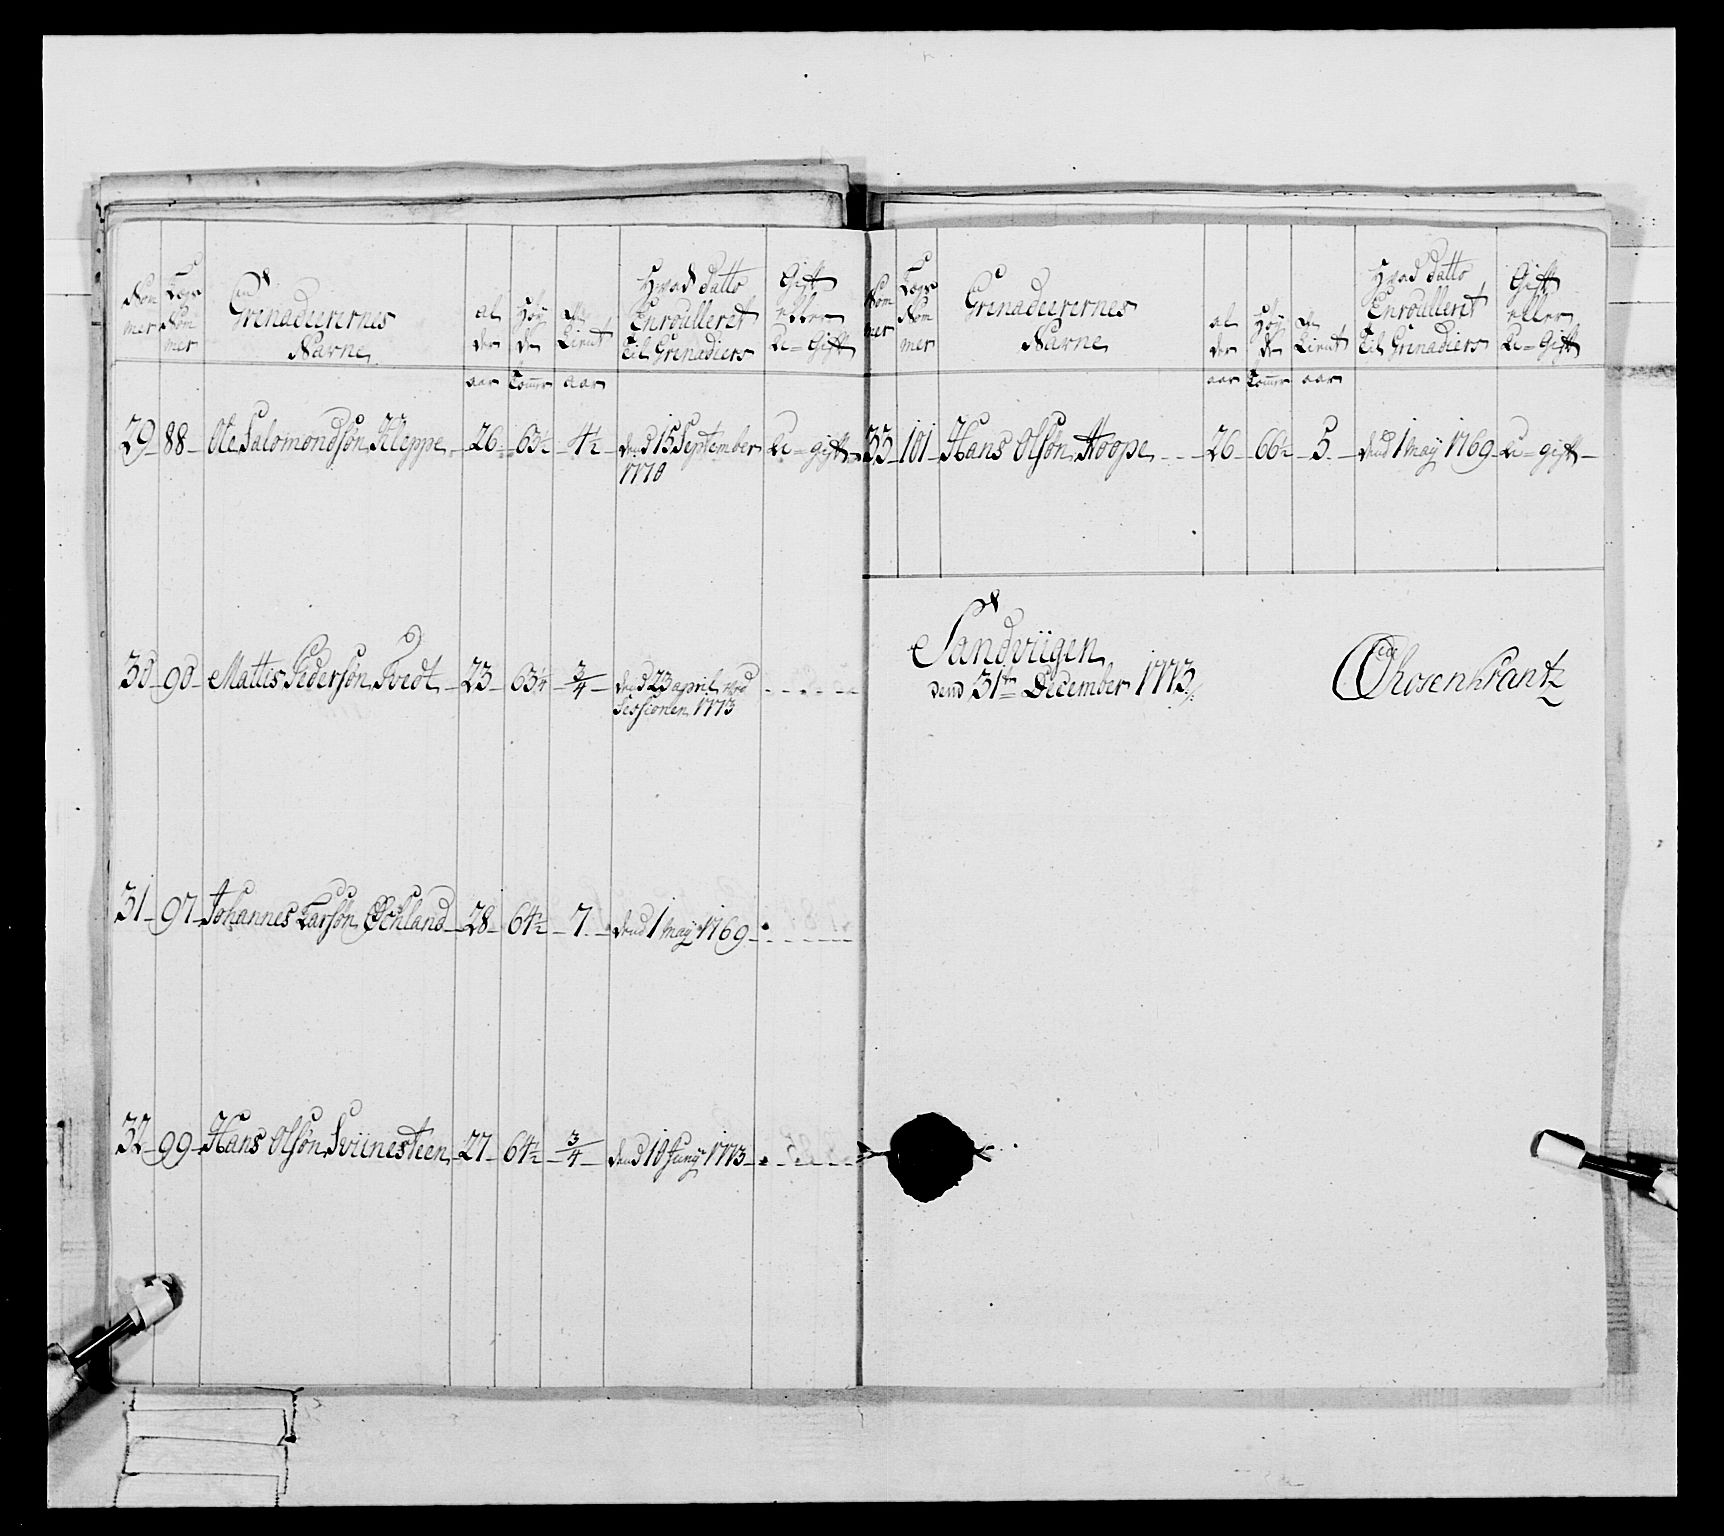 Nom mer
Lægs Nom mer
Grenadeerernes Navne
al der
Høy de
Tient
Hvad datto Enroulleret Til Grenadiers
Gift eller U=Gift
aar Tomer aar
29 88 Ole Salomondsøn Kleppe 26 63½ 4½ dend 15 September U=gift
1770
30 90 Mattis Pedersøn Tvedt 23 63¼ ¾ dend 23 april ved
Sessionen 1773
31 97 Johannes Larsøn 28 64½ 7 dend 1 may 1769
32 99 Hans Olsøn Sviinesteen 27 64½ ¾ dend 10 Juny 1773
Nom mer
Lægs Nom mer
Grenadeerernes Navne
al der
Høy de
Tient
Hvad datto Enroulleret Til Grenadiers
Gift eller U=Gift
aar Tomer aar
33 101 Hans Olsøn Hoope 26 66½ 5 dend 1 may 1769 U=gift
Sandviigen
dend 31te December 1773
Rosenkrantz